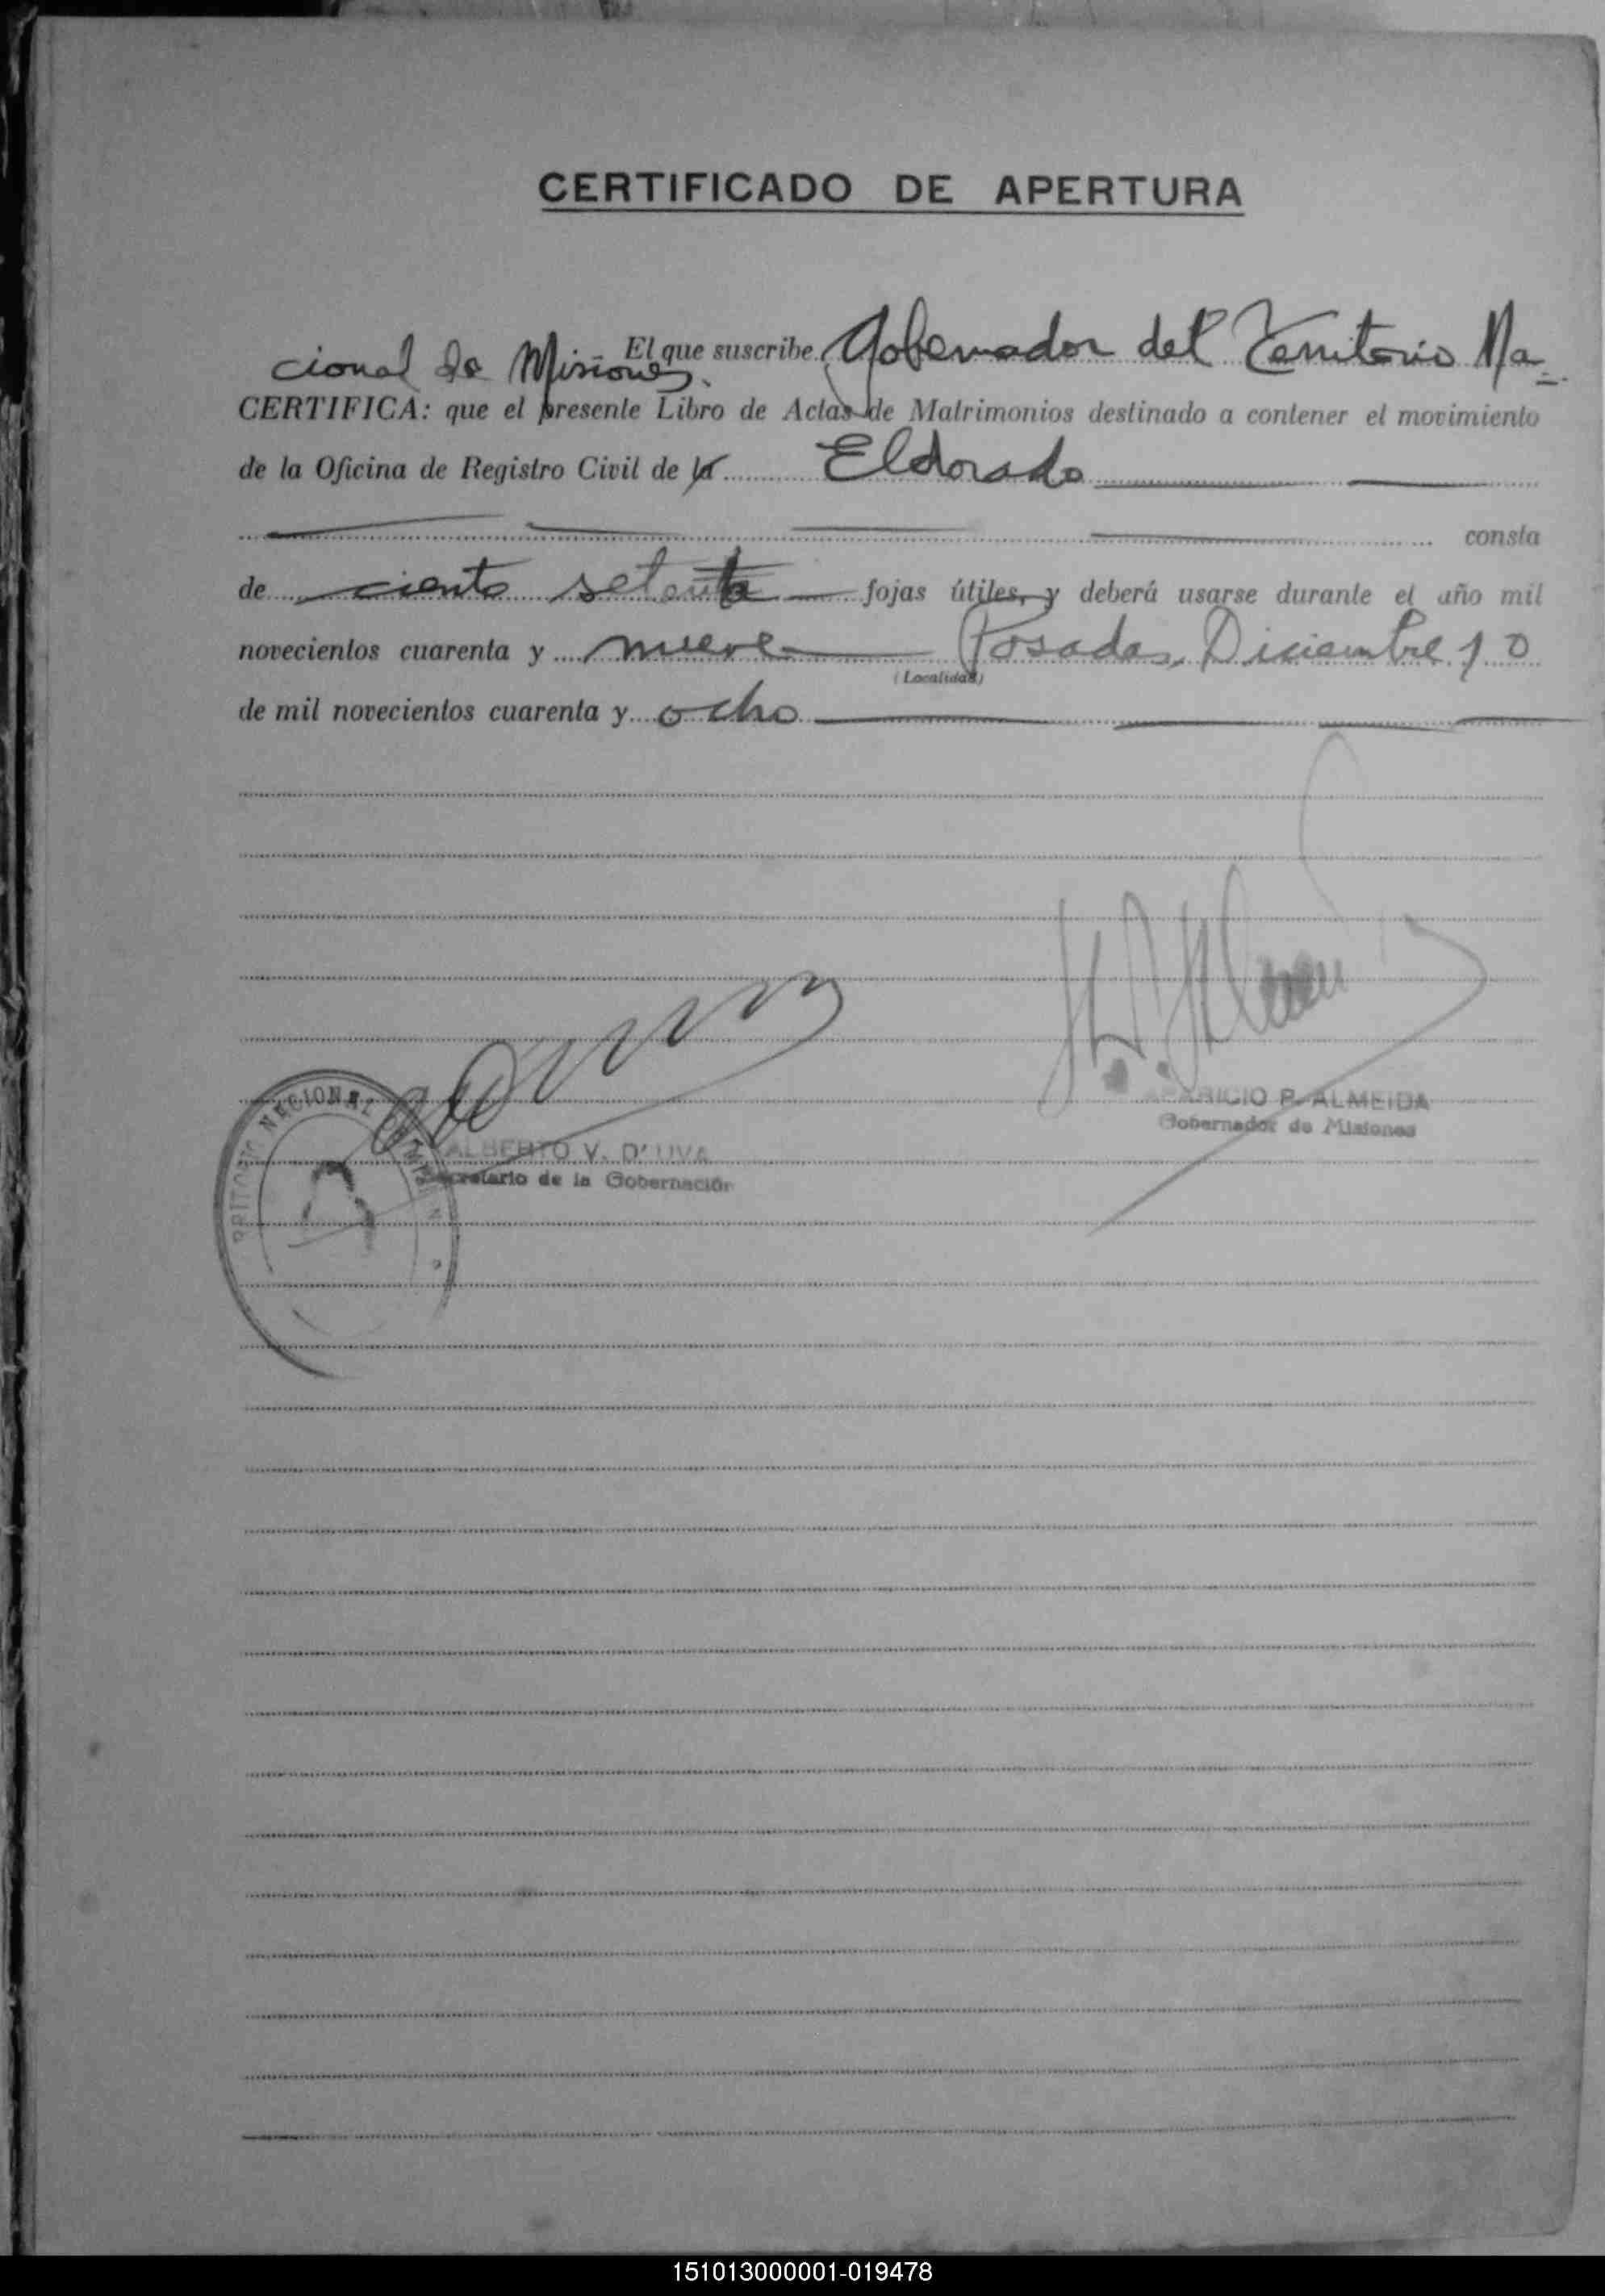 CERTIFICADO DE APERTURA
El que suscribe Gobernador del Territorio Na-
cional de Misiones.
CERTIFICA: que el presente Libro de Actas de Matrimonios destinado a contener el movimiento
de la Oficina de Registro Civil de la Eldorado
consta
de ciento setenta fojas útiles, y deberá usarse durante el año mil
novecientos cuarenta y nueve Posadas, Diciembre 10
(Localidad)
de mil novecientos cuarenta y ocho
APARICIO P. ALMEIDA
Gobernador de Misiones
ALBERTO V. D'UVA
Secretario de la Gobernación
NACIONAL
151013000001-019478